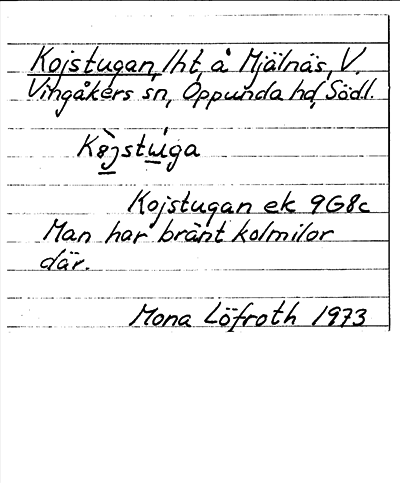 Kojstugan, lht, å Mjälnäs, V.
Vingåkers sn, Oppunda hd, Södl.
K8̀jstẃga
Kojstugan ek 9G8c
Man har bränt kolmilor
där.
Mona Löfroth 1973